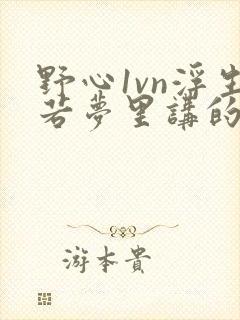 野心1vn浮生
若夢里講的
游本貴